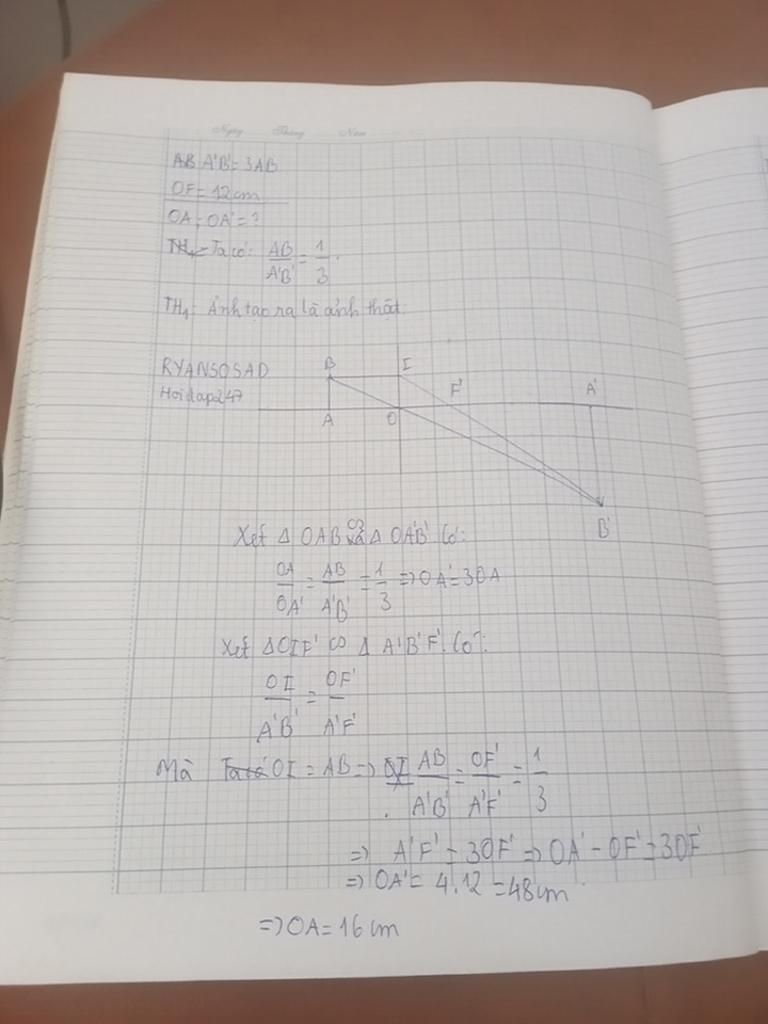 Ngày Tháng Năm
AB A'B' = 3AB
OF = 12cm
OA; OA' = ?
TH1 Ta có: AB/A'B' = 1/3.
TH1: Ảnh tạo ra là ảnh thật.
RYANSOSAD
Hoidap247
B I F' A'
A O
B'
Xét Δ OAB ∽ và Δ OA'B' Có:
OA/OA' = AB/A'B' = 1/3 => OA' = 3OA
Xét ΔOIF' ∽ Δ A'B'F'. Có:
OI/A'B' = OF'/A'F'
Mà Ta có OI = AB => OI AB/A'B' = OF'/A'F' = 1/3
=> A'F' = 3OF' => OA' - OF' = 3OF'
=> OA' = 4.12 = 48cm
=> OA = 16 cm